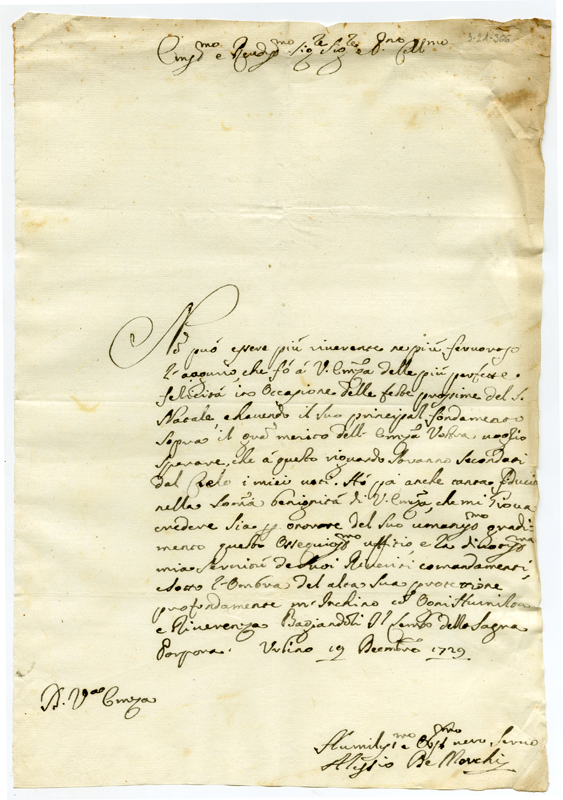 3-21-366
Emo e Revmo Sigre Sigre e Prne Colmo
Nō può essere più riverente ne più fervoroso
l'augurio, che fò à V. Emza delle più perfette
felicità in Occasione delle feste prossime del S.
Natale, e havendo il suo principal fondamento
sopra il gran merito dell'Emza Vostra voglio
sperare, che à questo riguardo saranno secondati
dal Cielo i miei voti. Hò poi anche tanta fiducia
nella somma benignità di V. Emza, che mi giova
credere sia per onorare del suo umanismo gradi-
mento questo Ossequiosmo uffitio e la divotisma
mia servitù de suoi Riveriti comandamenti,
e sotto l'Ombra del alta sua protettione
profondamente m'Inchino cō Ogni Humiltà
e Riverenza Bagiandoli Il Lembo della Sagra
Porpora. Urbino 19 Decembre 1729
D. Vra Emza
Humilismo e Obbmo vero Servo
Alysio De Marchi